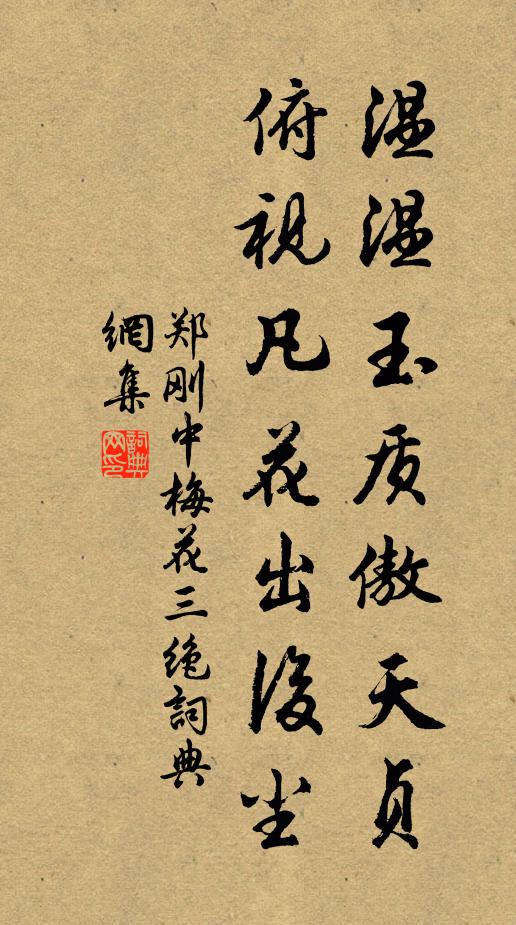 温温玉质傲天贞
俯视凡花出後尘
郑刚中梅花三绝詞典
網集
詞典网印